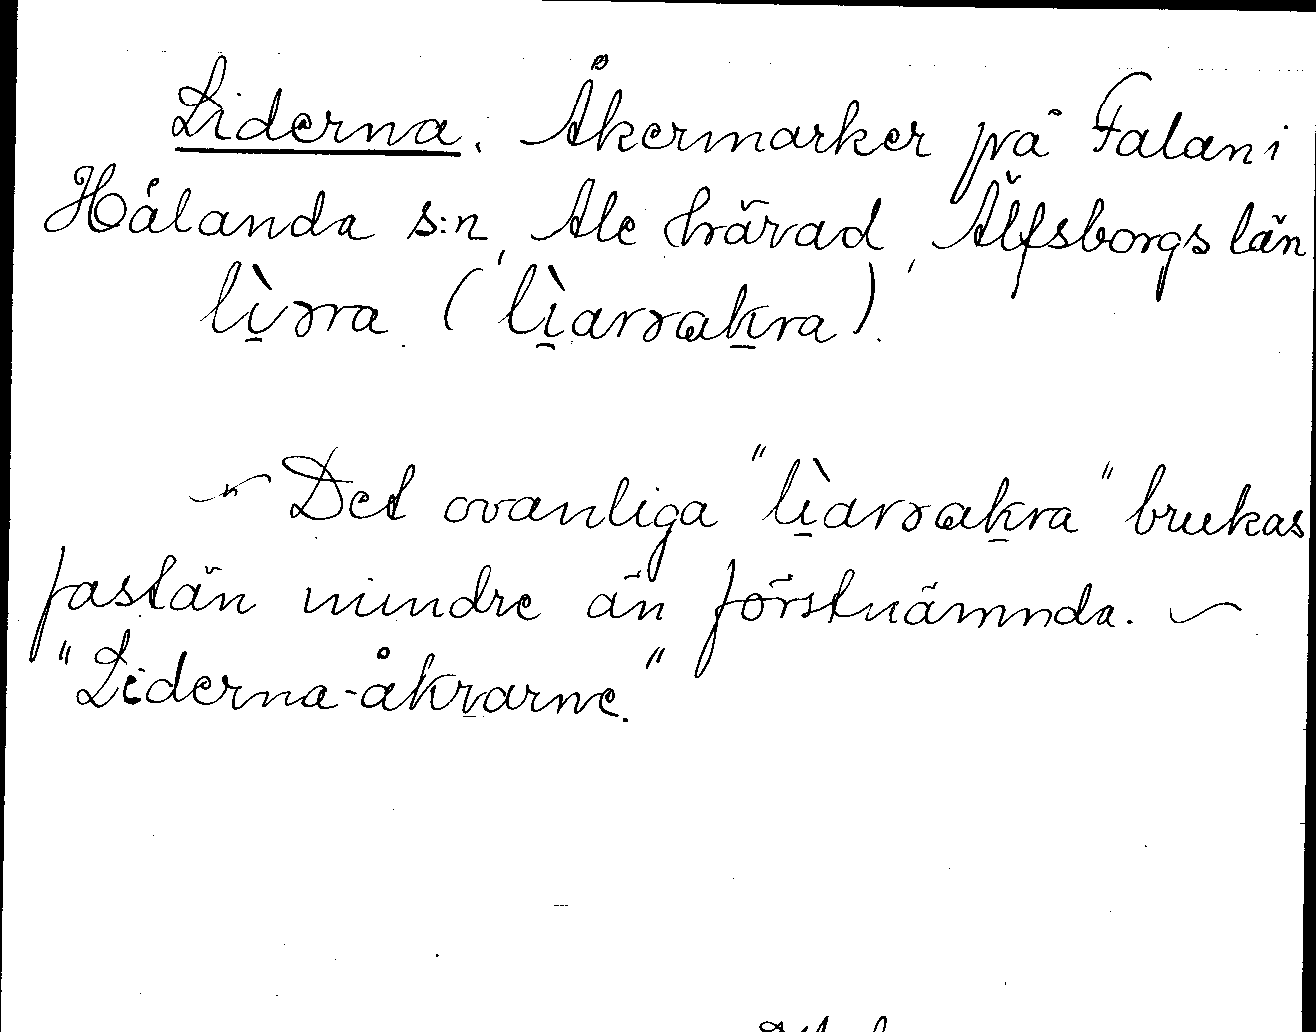 Liderna. Åkermarker på Falan i
Hålanda s:n, Ale härad, Älfsborgs län
lìɔra (lìarɔakra).
~ Det ovanliga "lìarɔakra" brukas
fastän mindre än förstnämnda. ~
"Liderna-åkrarne."